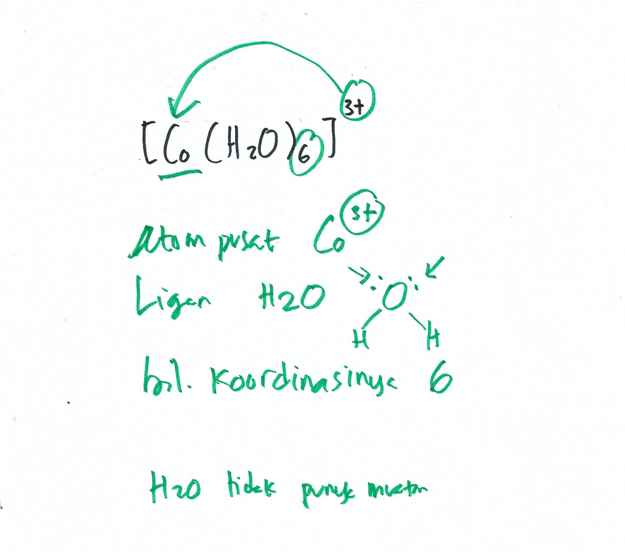 [Co(H2O)6]3+
Atom pusat Co3+
Ligan H2O :O:
H H
bil. koordinasinya 6
H2O tidak punya muatan